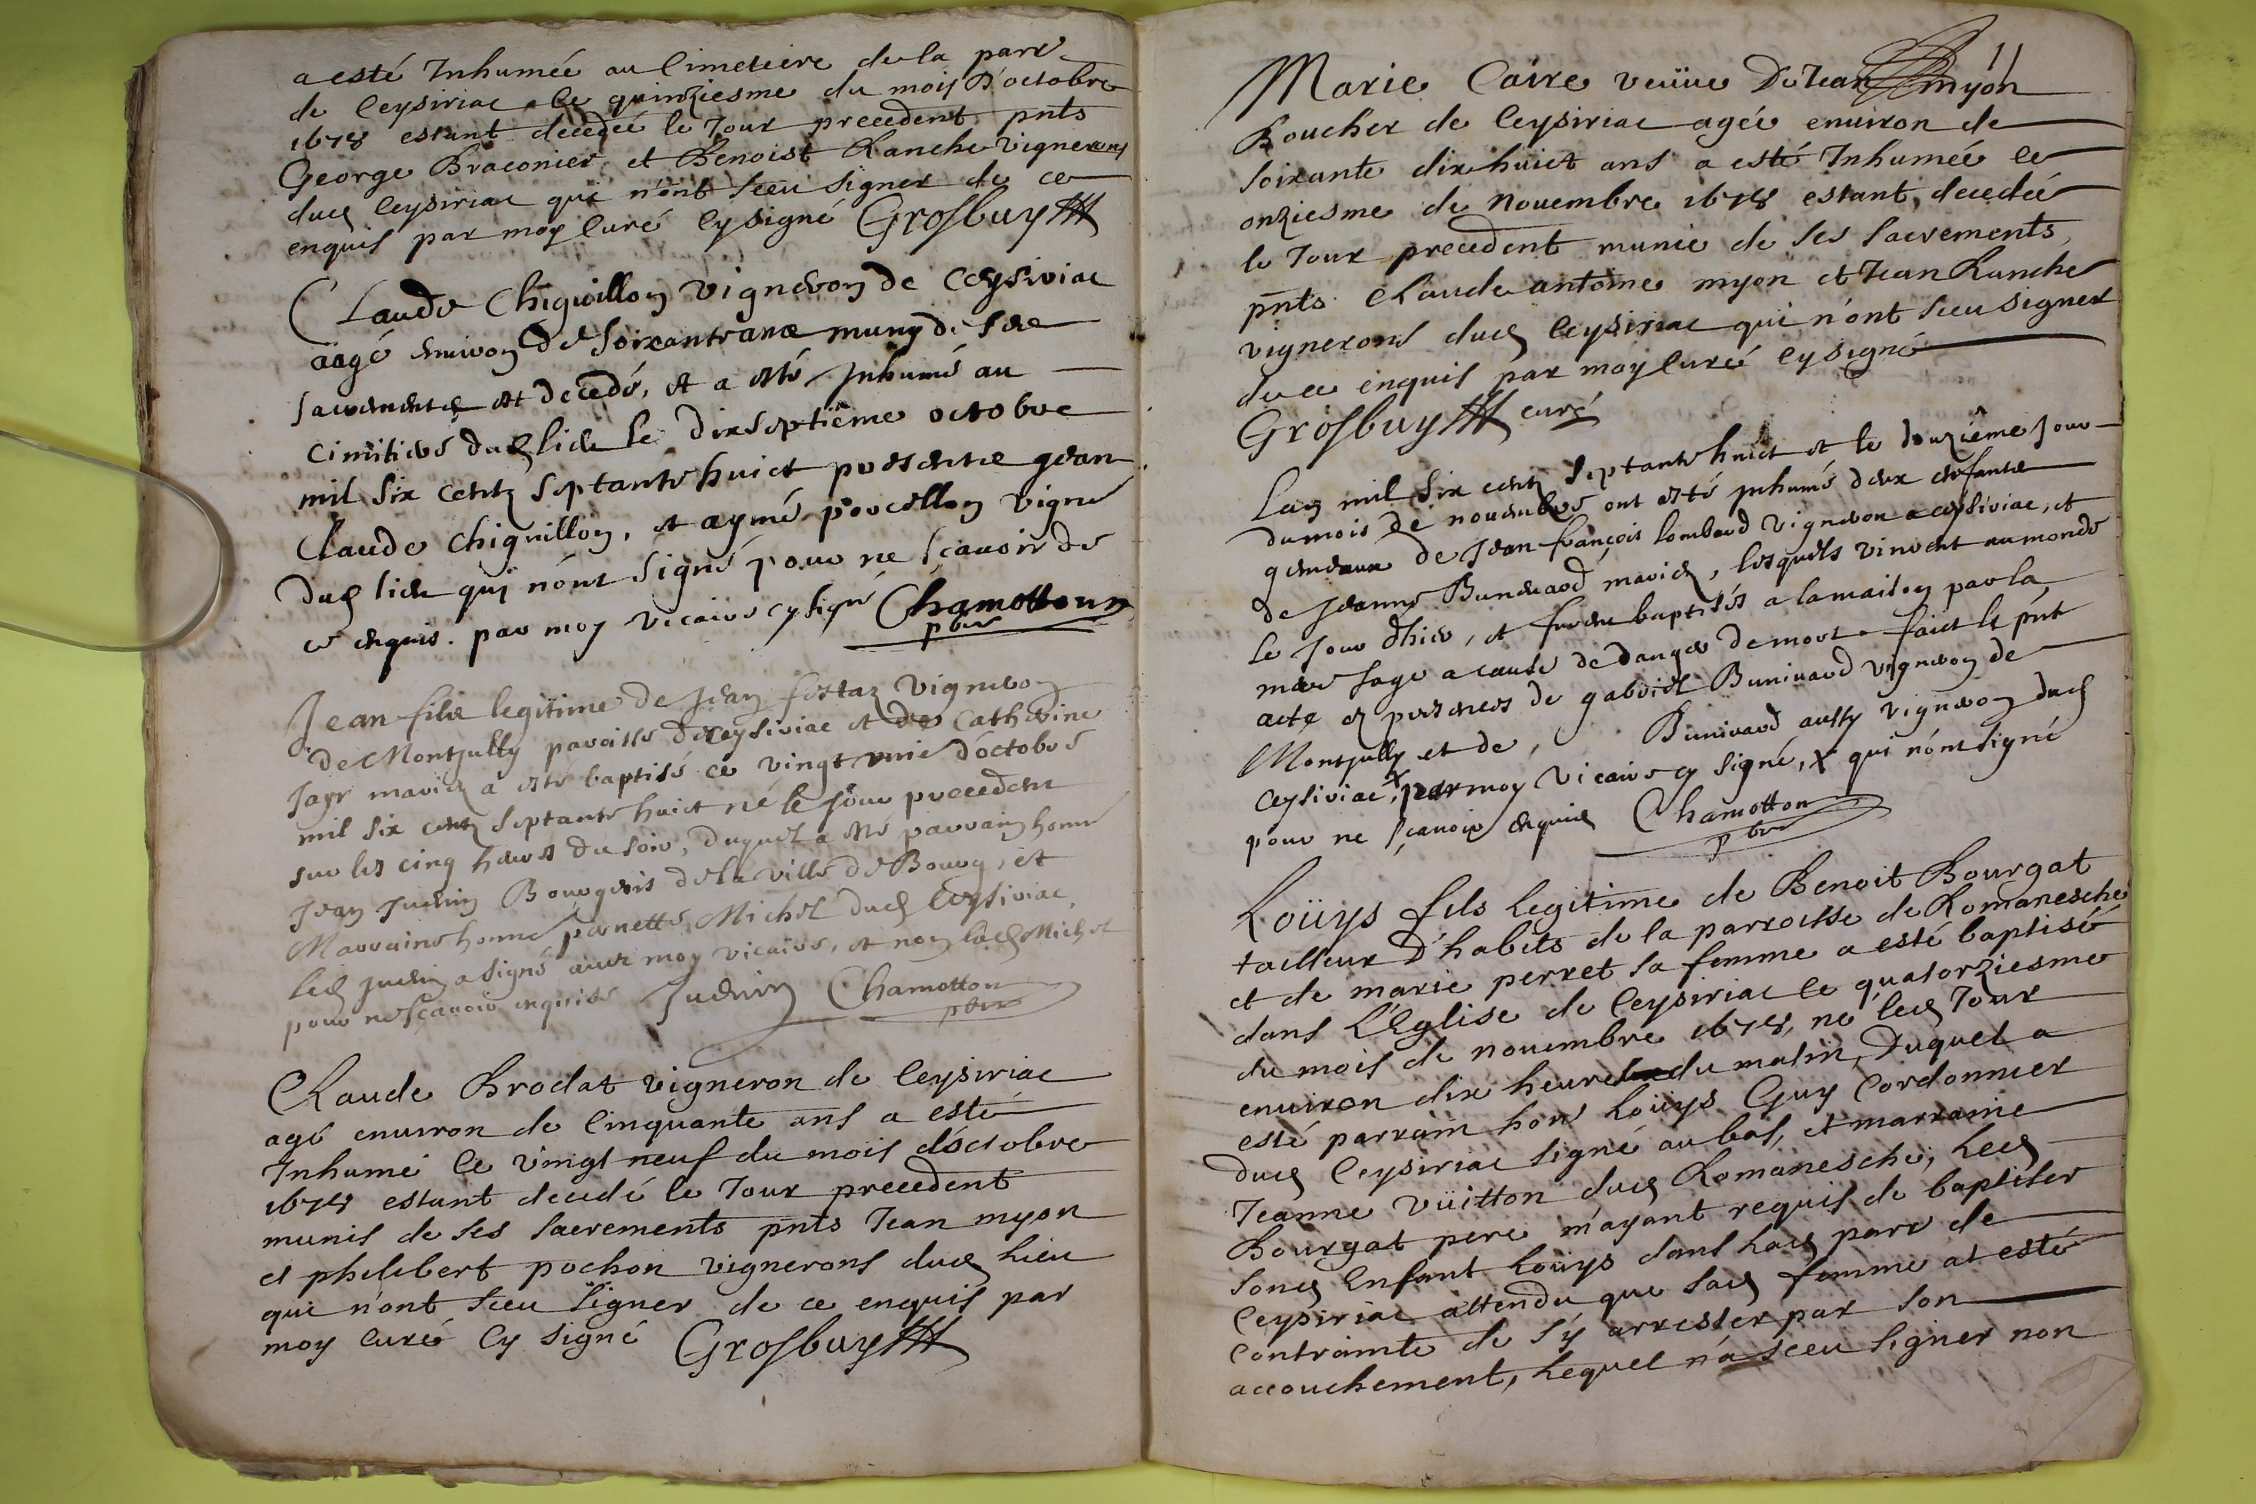 a esté Inhumée au Cimetiere de la parr
de Ceysiriac le quinziesme du mois D'octobre
1678 estant decedée le Jour precedent pnts
George Braconier et Benoist Ranche vignerons
dud Ceysiriac qui n'ont sceu signer de ce
enquis par moy Curé Cy signé Grosbuy
Claude Chiquillon vigneron de Ceysiriac
aagé environ de soixante ans muny de ses
sacrements est decedé, et a esté Inhumé au
cimitiere dud lieu le dixseptiême octobre
mil six cents septante huict presents Jean
Claude Chiquillon, et aymé porcellon vigne
dud lieu qui n'ont signé pour ne sçavoir de
ce enquis par moy vicaire cy signé Chamotton
pbre
Jean fils legitime de Jean vigneron
de Montjully paroisse de Ceysiriac et de Catherine
Jayr mariez a esté baptisé ce vingt unie d'octobre
mil six cents septante huict né le jour precedent
sur les cinq heures du soir, duquel a esté parrain honne
Jean Juenin Bourgeois de la ville de Bourg, et
Marraine honne pernette Michel dud Ceysiriac,
led Juenin a signé avec moy vicaire, et non lad Michel
pour ne sçavoir enquise Juenin Chamotton
pbre
Claude Brodat vigneron de Ceysiriac
agé environ de Cinquante ans a esté
Inhumé le vingt neuf du mois d'octobre
1678 estant decedé le Jour precedent
munis de ses sacrements pnts Jean myon
et philibert pochon vignerons dud Lieu
qui n'ont sceu signer de ce enquis par
moy Curé Cy signé Grosbuy
11
Marie Caire veüve De Jean myon
Boucher de Ceysiriac agée environ de
soixante dix huict ans a esté Inhumée le
onziesme de Novembre 1678 estant decedée
le Jour precedent munie de ses sacrements
pnts Claude antoine myon et Jean Ranche
vignerons dud Ceysiriac qui n'ont sceu signer
de ce enquis par moy Curé Cy signé
Grosbuy curé
L'an mil six cents septante huict et le douziême jour
du mois de novembre ont esté inhumé deux enfants
gemeaux de Jean françois lombard vigneron a ceysiriac, et
de Jeanne Bunevard mariez, lesquels vinrent au monde
le jour d'hier, et furent baptisés a la maison par la
mere sage a cause de danger de mort faict le pnt
acte ez presences de gabriel Bunivard vigneron de
Montjully et de, Bunivard aussy vigneron dud
Ceysiriac, par moy vicaire cy signé, x qui n'ont signé
pour ne sçavoir enquis Chamotton
pbre
Loüys fils legitime de Benoit Bourgat
tailleur D'habits de la parroisse de Romanesche
et de marie perret sa femme a esté baptisé
dans L'Eglise de Ceysiriac le quatorziesme
du mois de novembre 1678, né led Jour
environ dix heures du matin, Duquel a
esté parrain hon Loüys Guy Cordonnier
dud Ceysiriac signé au bas, et marraine
Jeanne Vüitton dud Romanesche, Led
Bourgat pere m'ayant requis de baptiser
sond Enfant Loüys dans Lad parr de
Ceysiriac attendu que sad femme at esté
contrainte de s'y arrester par son
accouchement, Lequel n'a sceu signer non